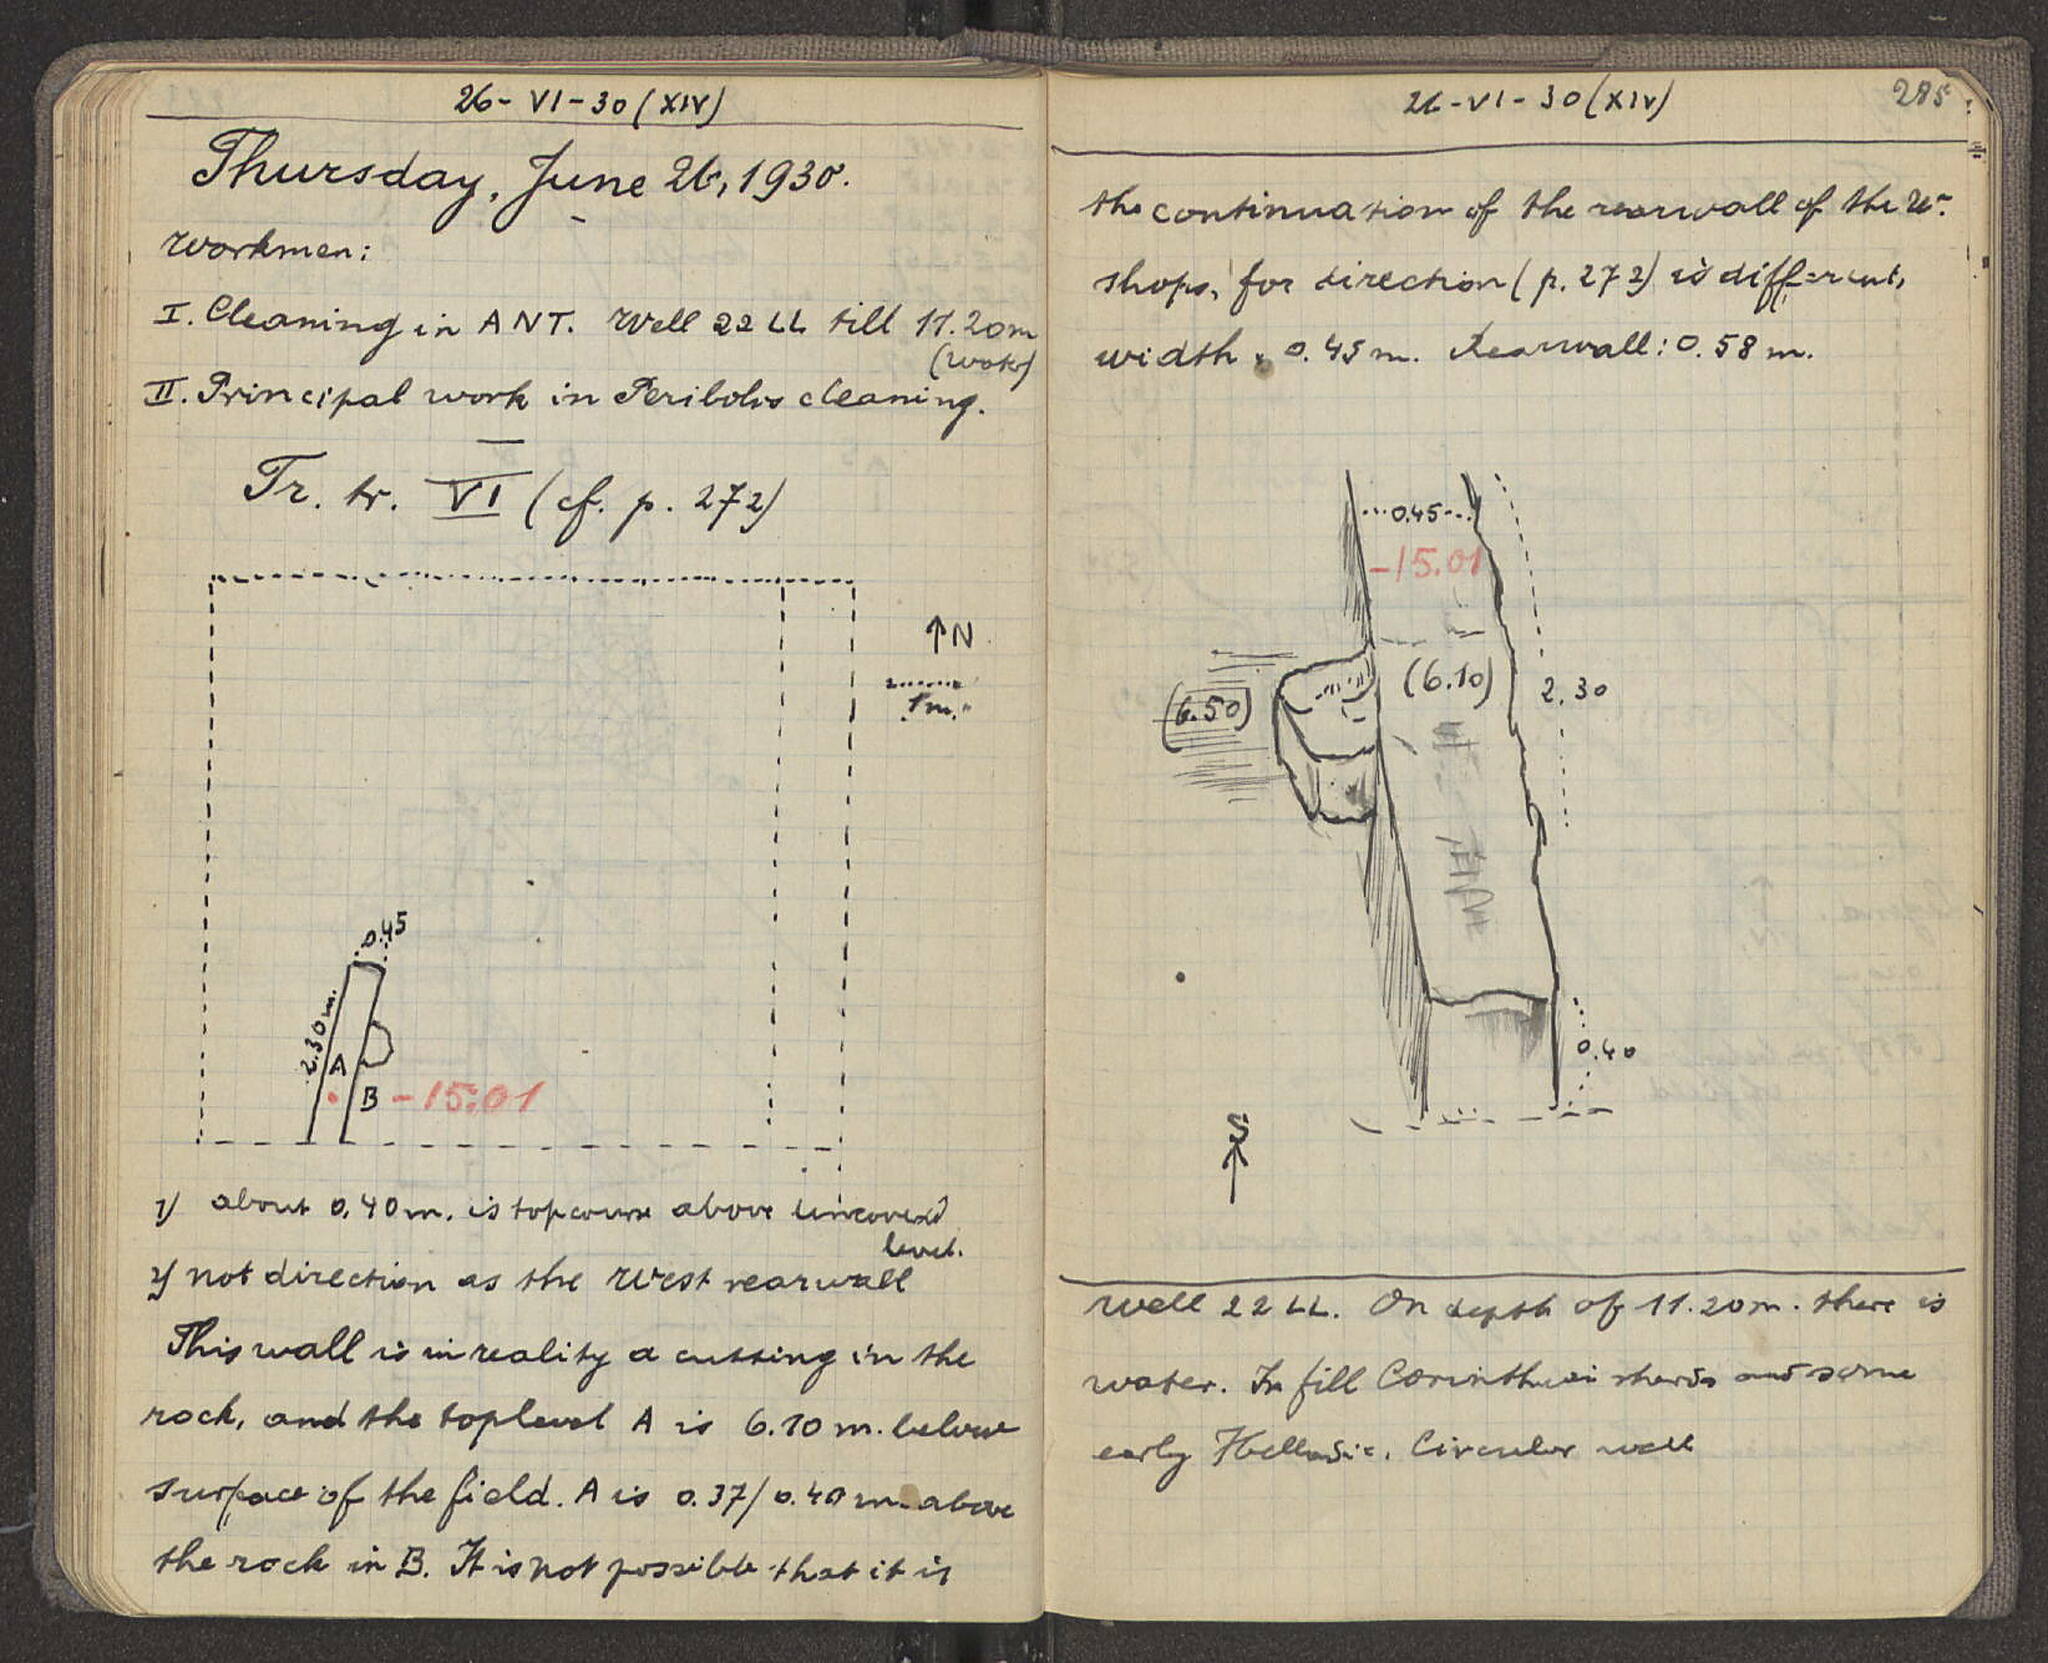 26-VI-30 (XIV)
Thursday, June 26, 1930.
Workmen:
I. Cleaning in ANT. Well 22 LL till 11.20m
(water)
II. Principal work in Peribolos cleaning.
Tr. tr. VI (cf. p. 272)
↑N
1m.
0.45
2.30m.
A
B -15.01
1) about 0.40m. is topcourse above uncovered
level.
2) not direction as the West rearwall
This wall is in reality a cutting in the
rock, and the toplevel A is 6.10 m. below
surface of the field. A is 0.37/0.40 m. above
the rock in B. It is not possible that it is
26-VI-30 (XIV)
285
the continuation of the rearwall of the W.
shops, for direction (p. 272) is different,
width: 0.45 m. Rearwall: 0.58 m.
0.45
-15.01
(6.10)
(6.50)
2.30
0.40
S
Well 22 LL. On depth of 11.20m. there is
water. In fill Corinthian sherds and some
early Helladic. Circular well